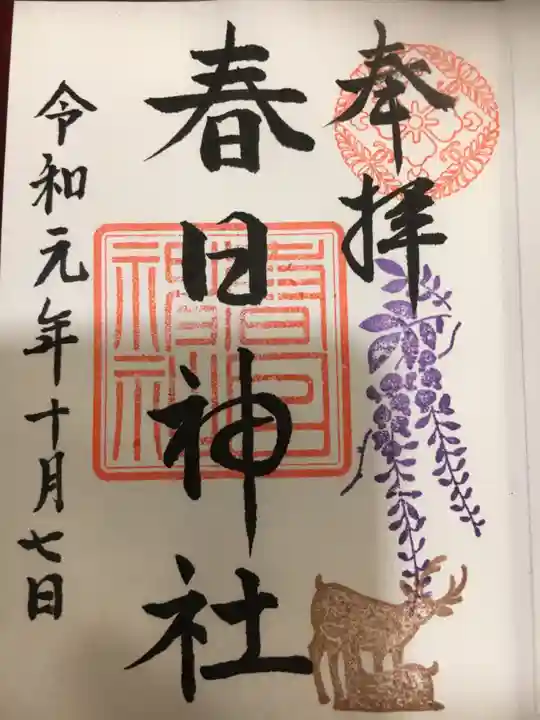 奉拝
春日神社
春日
神社
令和元年十月七日